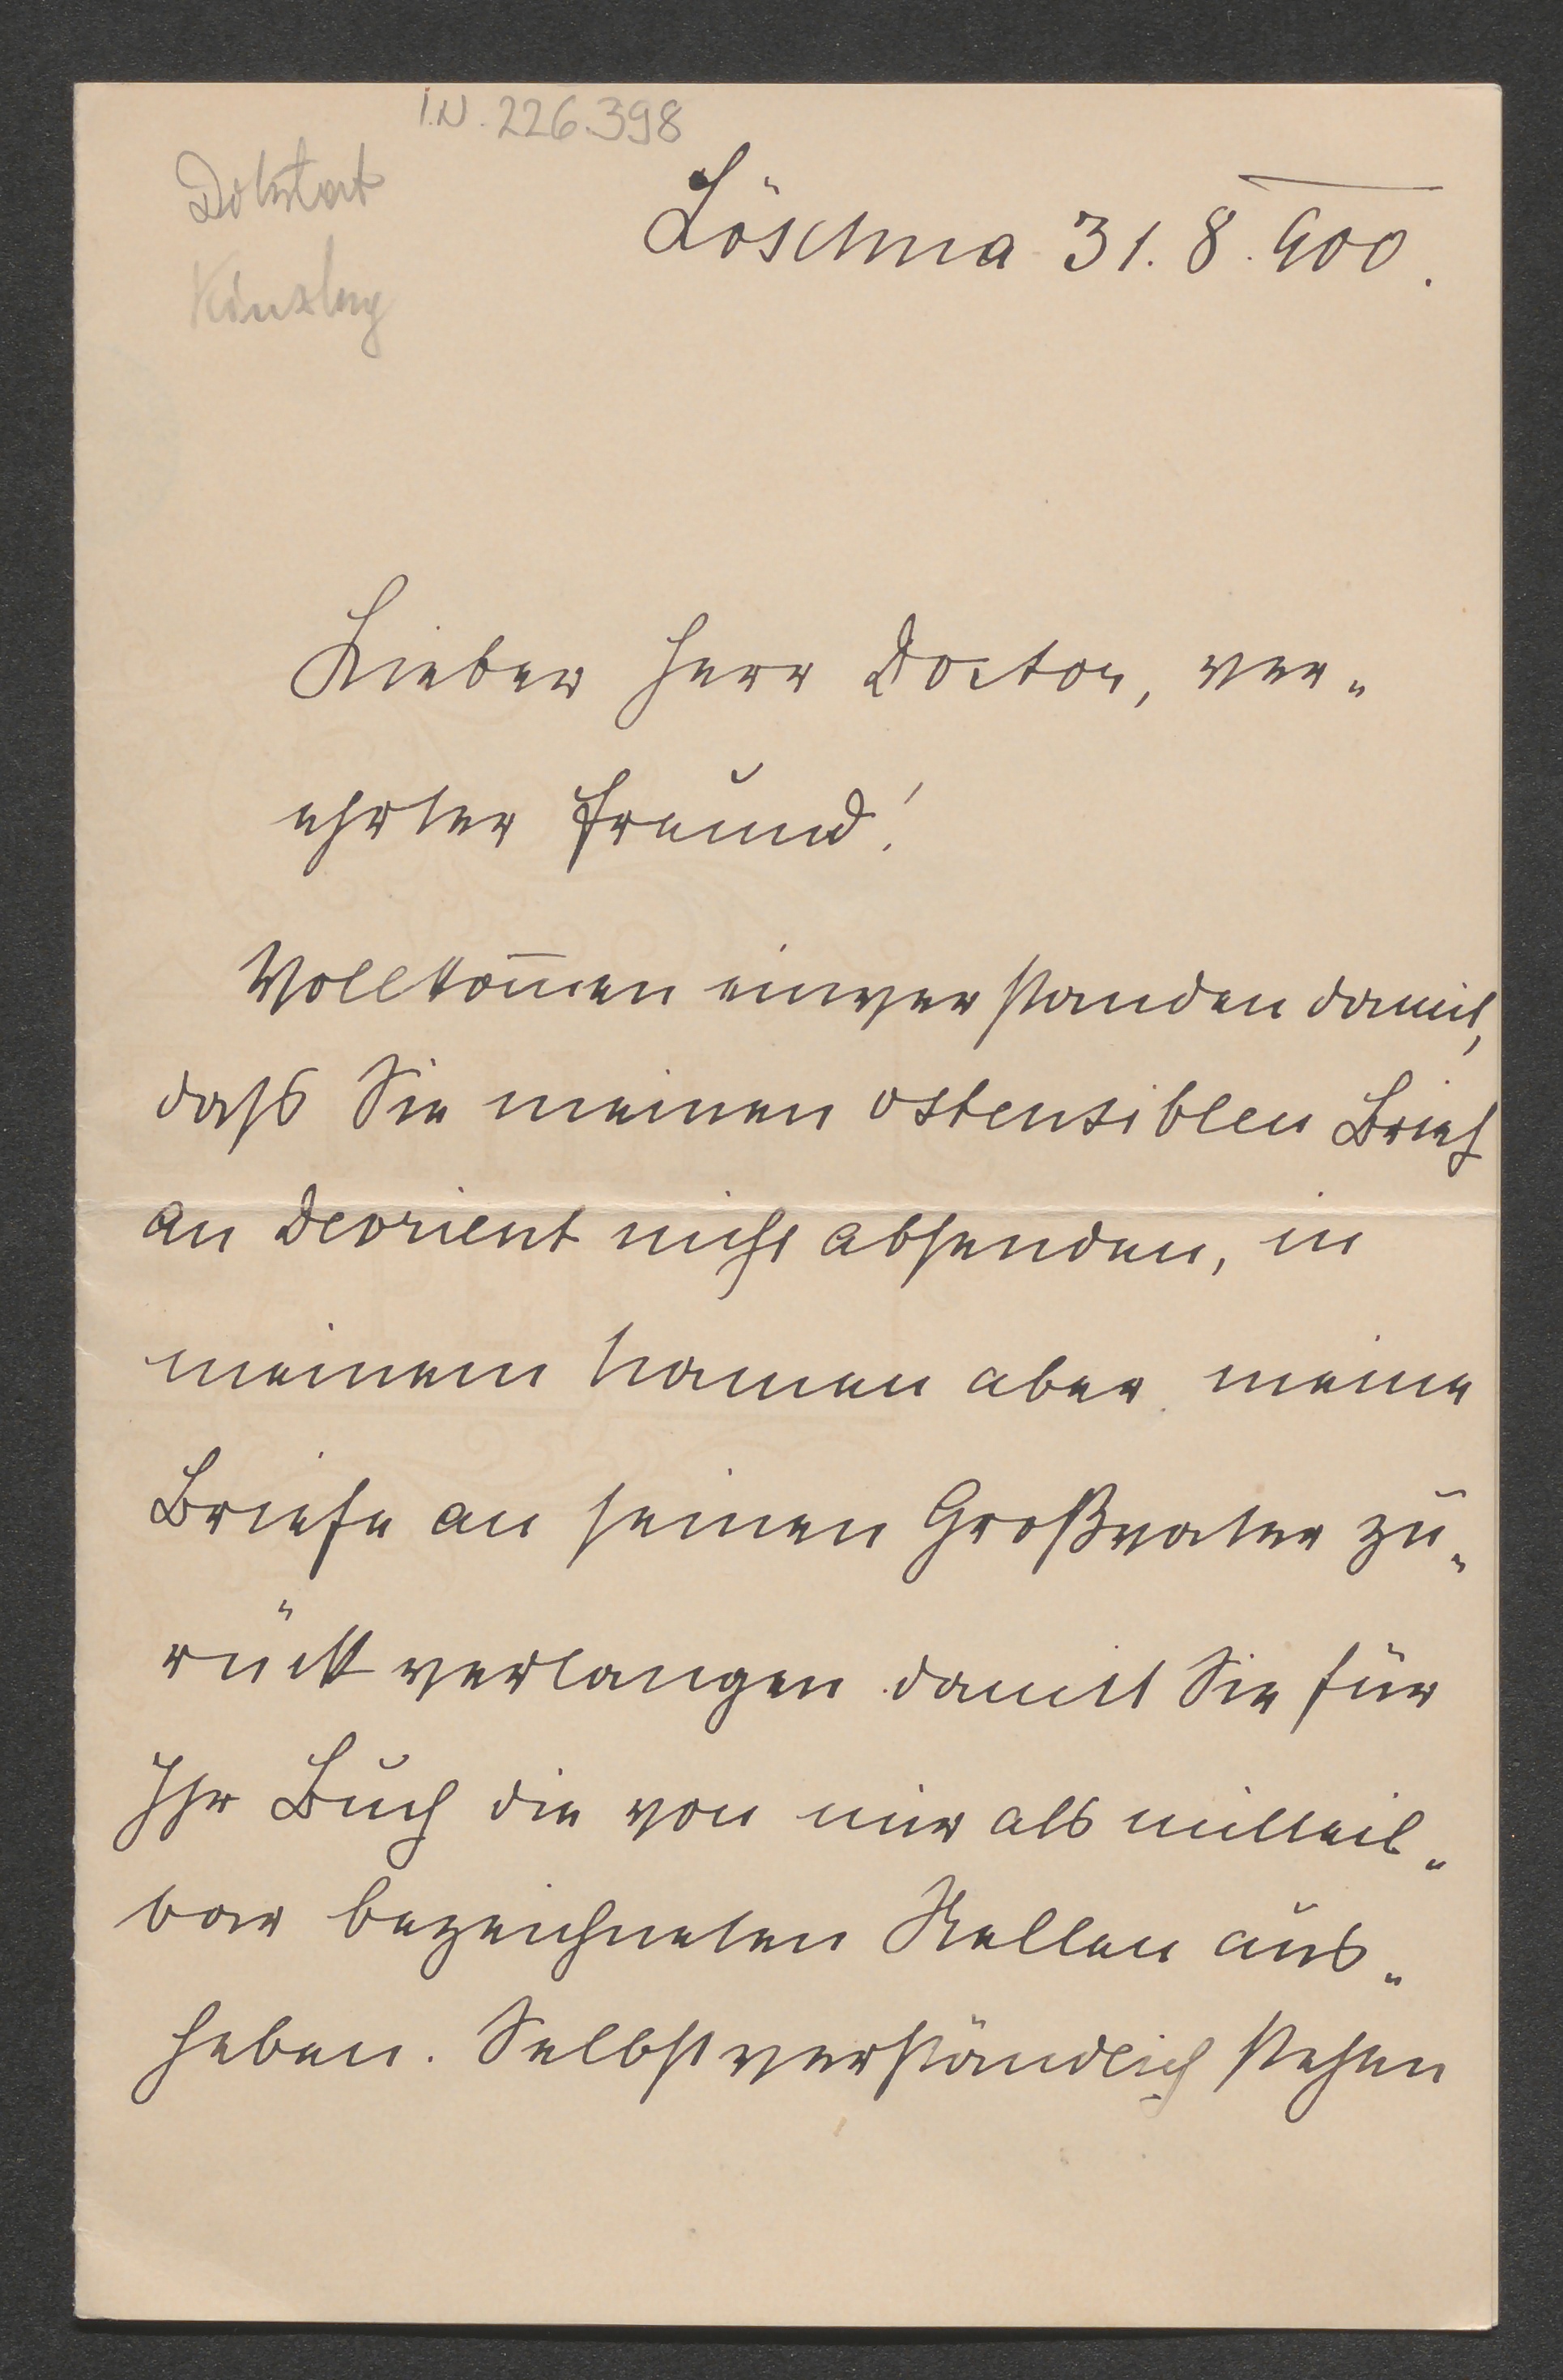 I.N. 226.398
Löschna 31. 8. 900.
Lieber Herr Doctor, ver„
ehrter Freund!
Vollkom̅en einverstanden damit,
daſs Sie meinen ostensiblen Brief
an Devrient nicht absenden, in
meinem Namen aber meine
Briefe an seinen Großvater zu„
rück verlangen damit Sie für
Ihr Buch die von mir als mitteil„
bar bezeichneten Stellen aus„
heben. Selbstverständlich stehen